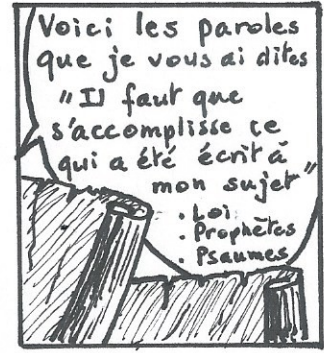 Voici les paroles
que je vous ai dites
"Il faut que
s'accomplisse ce
qui a été écrit à
mon sujet"
. Loi
. Prophètes
. Psaumes